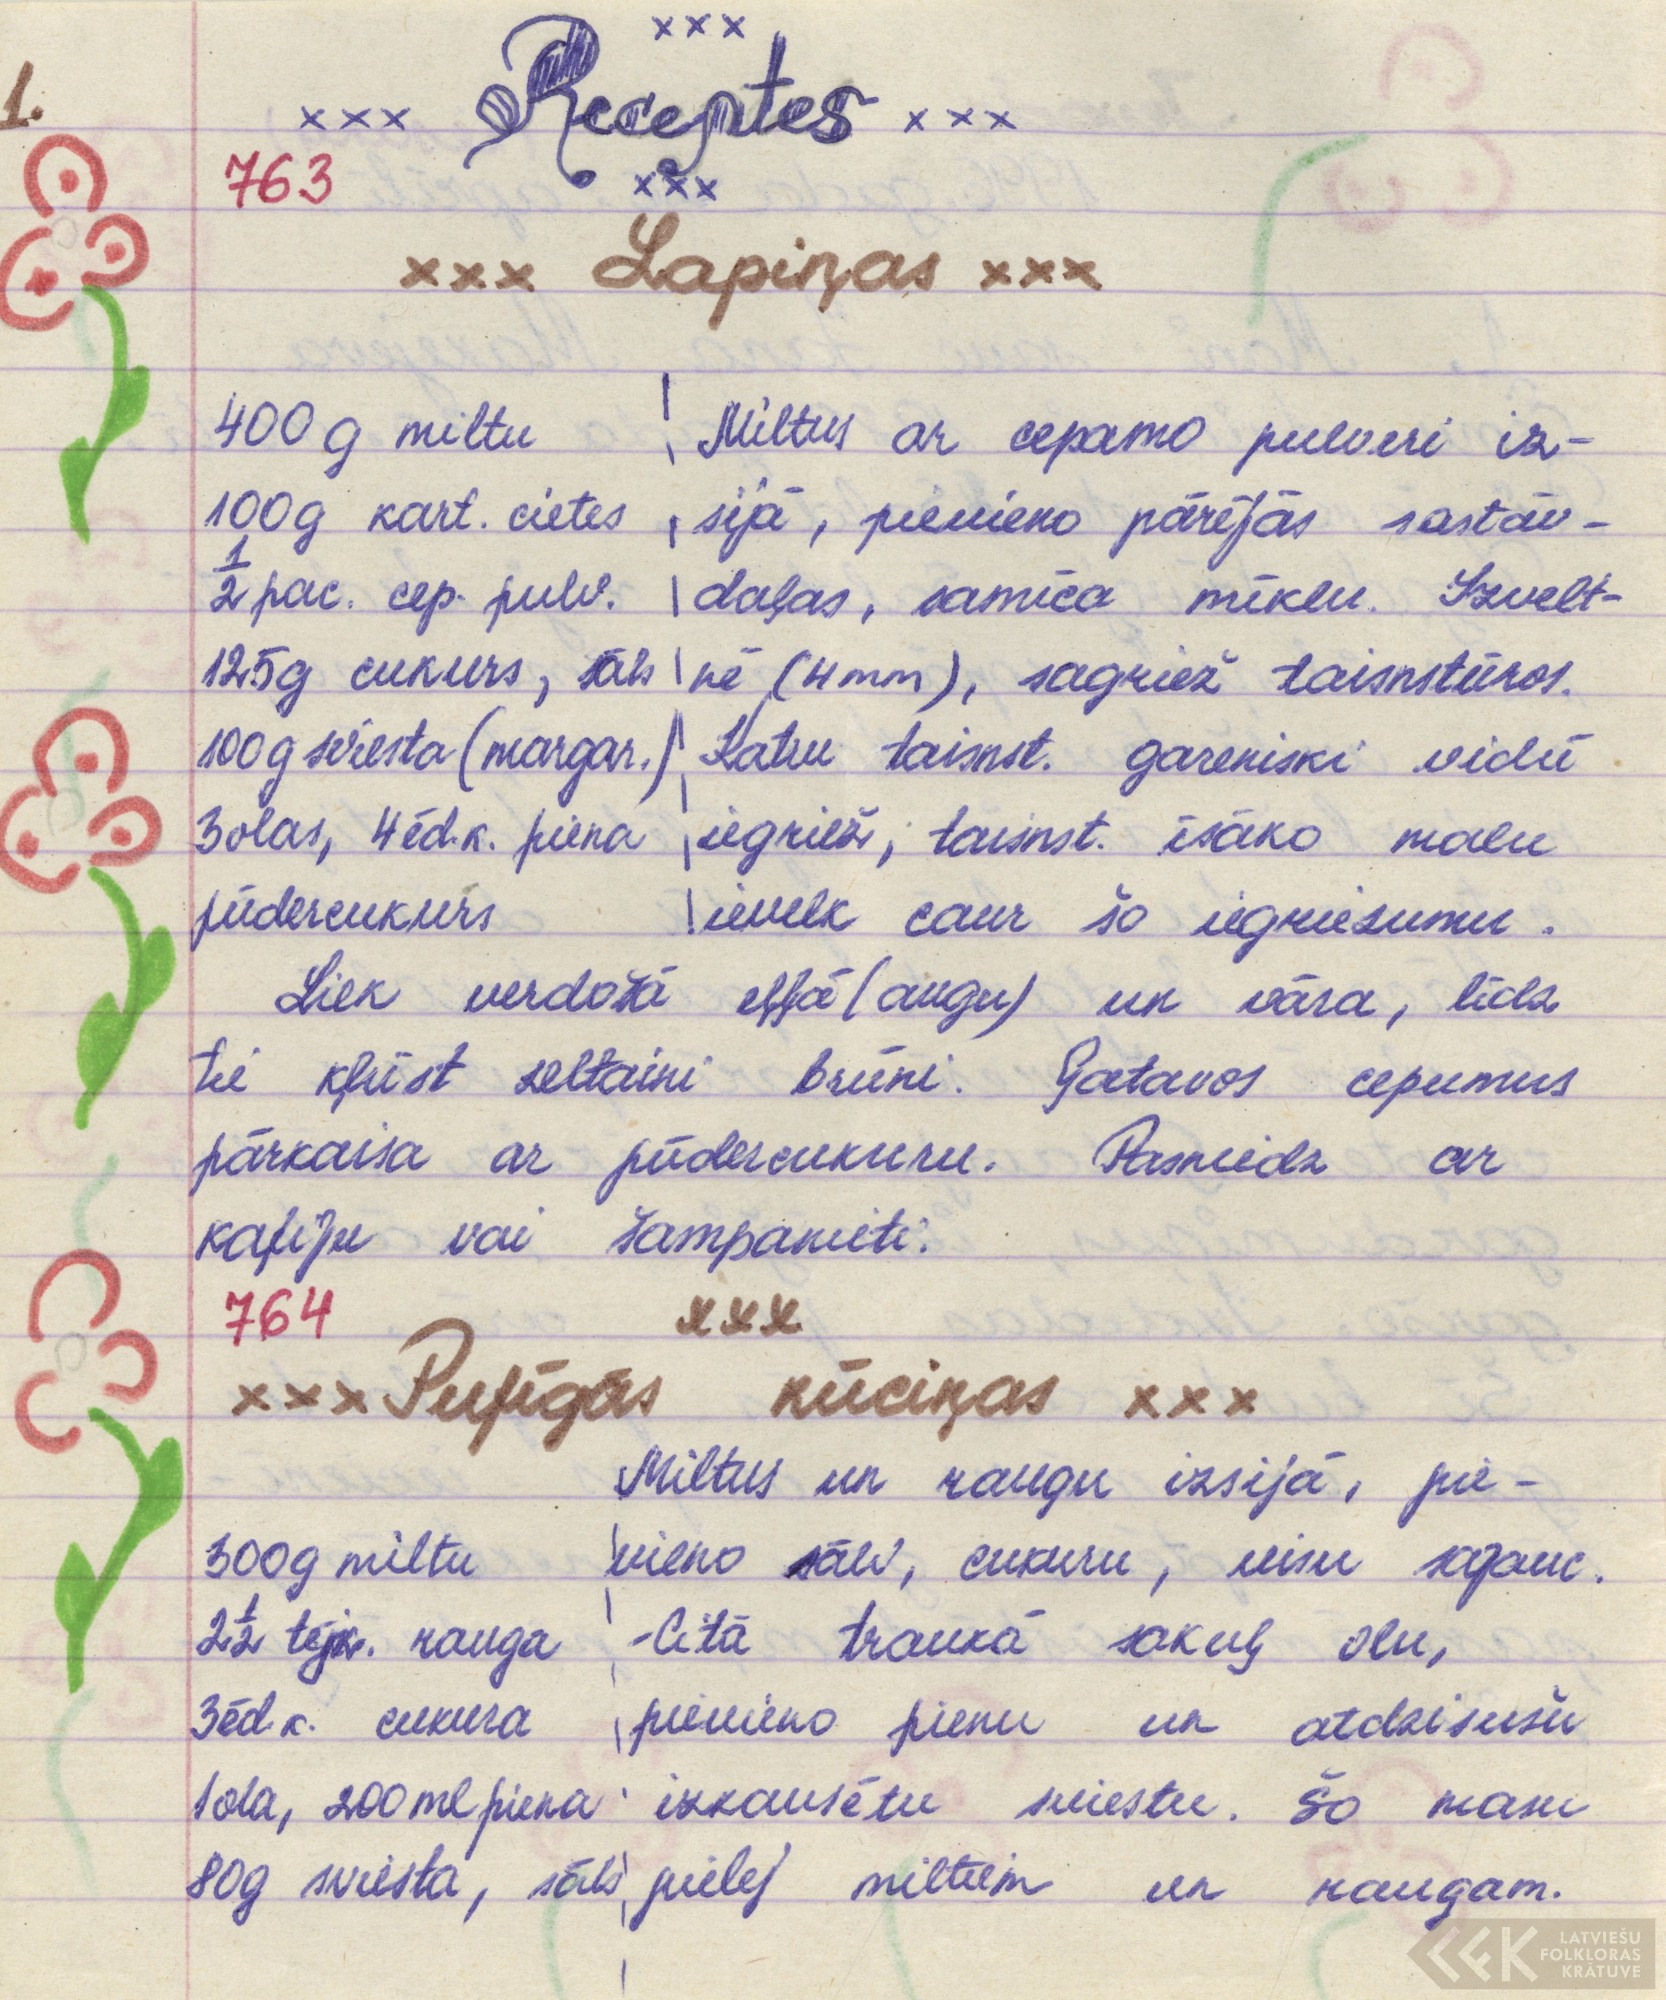 1.
x x x
x x x Receptes x x x
x x x
763
x x x Lapiņas x x x
400 g miltu
100g kart. cietes
1/2 pac. cep. pulv.
125g cukurs, sāls
100g sviesta (margar.)
3 olas, 4 ēd.k. piena
pūdercukurs
Miltus ar cepamo pulveri iz-
sijā, pievieno pārējās sastāv-
daļas, samīca mīklu. Izvelt-
nē (4 mm), sagriež taisnstūros.
Katru taisnst. gareniski vidū
iegriež, taisnst. īsāko malu
ievelk caur šo iegriezumu.
Liek verdošā eļļā (augu) un vāra, līdz
tie kļūst zeltaini brūni. Gatavos cepumus
pārkaisa ar pūdercukuru. Pasniedz ar
kafiju vai šampanieti.
764
x x x
x x x Pufīgās kūciņas x x x
300g miltu
2 1/2 tējk. rauga
3ēd.k. cukura
1 ola, 200 ml piena
80g sviesta, sāls
Miltus un raugu izsijā, pie-
vieno sāli, cukuru, visu sajauc.
-Citā traukā sakuļ olu,
pievieno pienu un atdzisušu
izkausētu sviestu. Šo masu
pielej miltiem un raugam.
LATVIEŠU
FOLKLORAS
KRĀTUVE